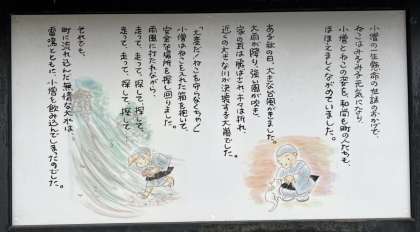 小僧の一生懸命の世話のおかげで、
ねこはみるみる元気になり、
小僧とねこの姿を、和尚も町の人たちも、
ほほえましくながめていました。
ある秋の日、大きな台風がきました。
大雨が降り、強い風が吹き、
家の瓦は飛ばされ、木々は折れ、
近くの大きな川が決壊する大嵐でした。
「大変だ！ねこを守らなくちゃ！」
小僧はねこを入れた箱を抱いて、
安全な場所を探し回りました。
雨風に打たれながら、
走って、走って、探して、探して、
走って、走って、探して、探して、
それでも、
町に流れ込んだ無情な大水は、
雷鳴とともに、小僧を飲み込んでしまったのでした。